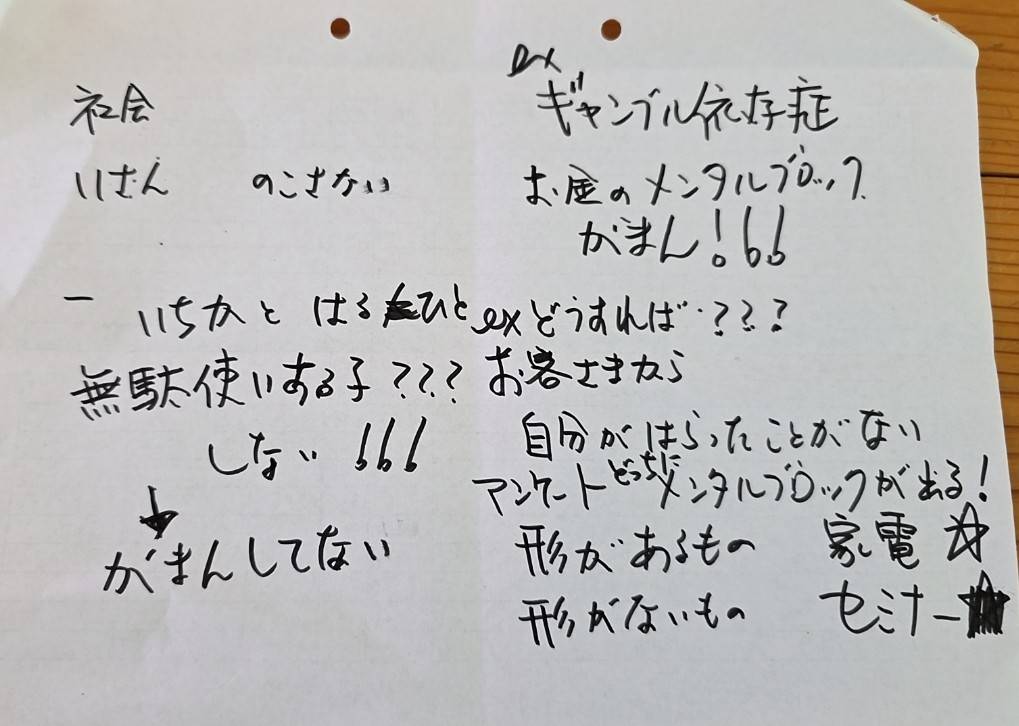 社会
いさん のこさない
ー いちかと はるひと
無駄使いする子???
しない!!!
↓
がまんしてない
ex
ギャンブル依存症
お金のメンタルブロック
がまん!!!
exどうすれば???
お客さまから
自分がはらったことがない
アンケートどっちにメンタルブロックが出る!
形があるもの 家電 ☆
形がないもの セミナー★